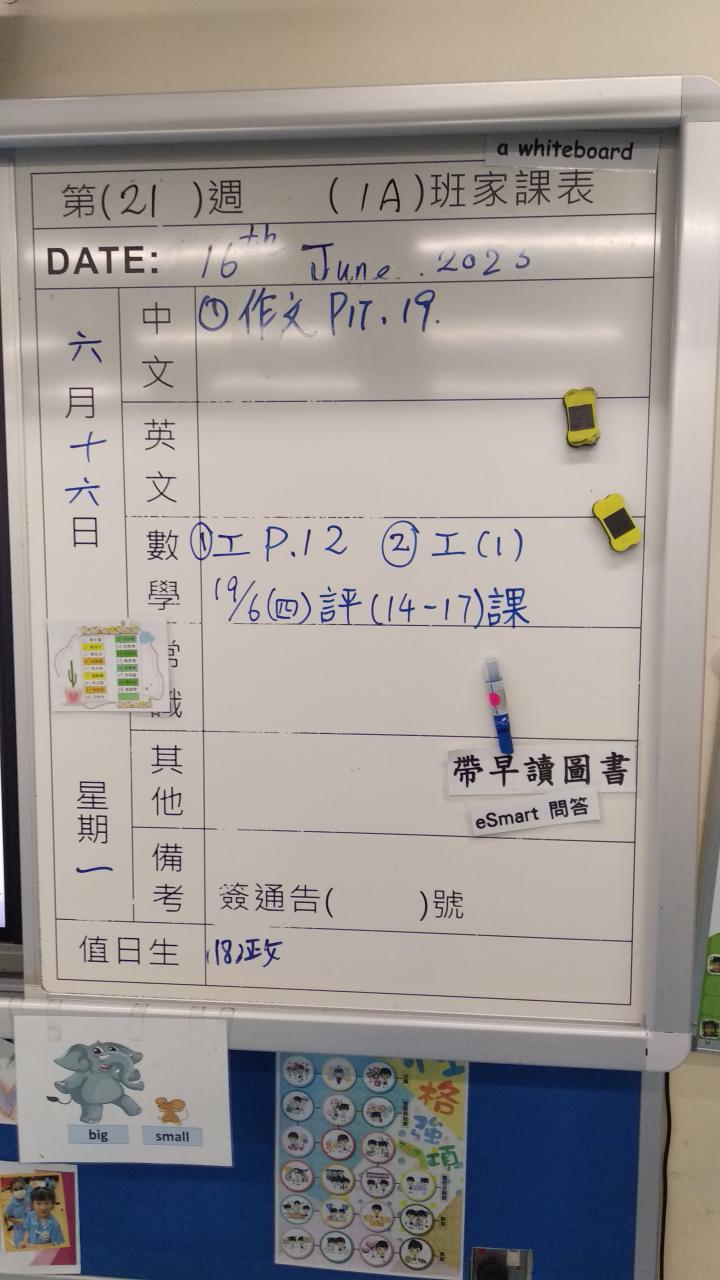 a whiteboard
第(21 )週 (1A)班家課表
DATE: 16th June. 2025
六月十六日
星期一
中文 ①作文 P17. 19.
英文
數學 ①工 P.12 ②工(1)
19/6(四)評(14-17)課
常識
其他
帶早讀圖書
eSmart 問答
備考 簽通告( )號
值日生 (18)政
big small
格
強
項